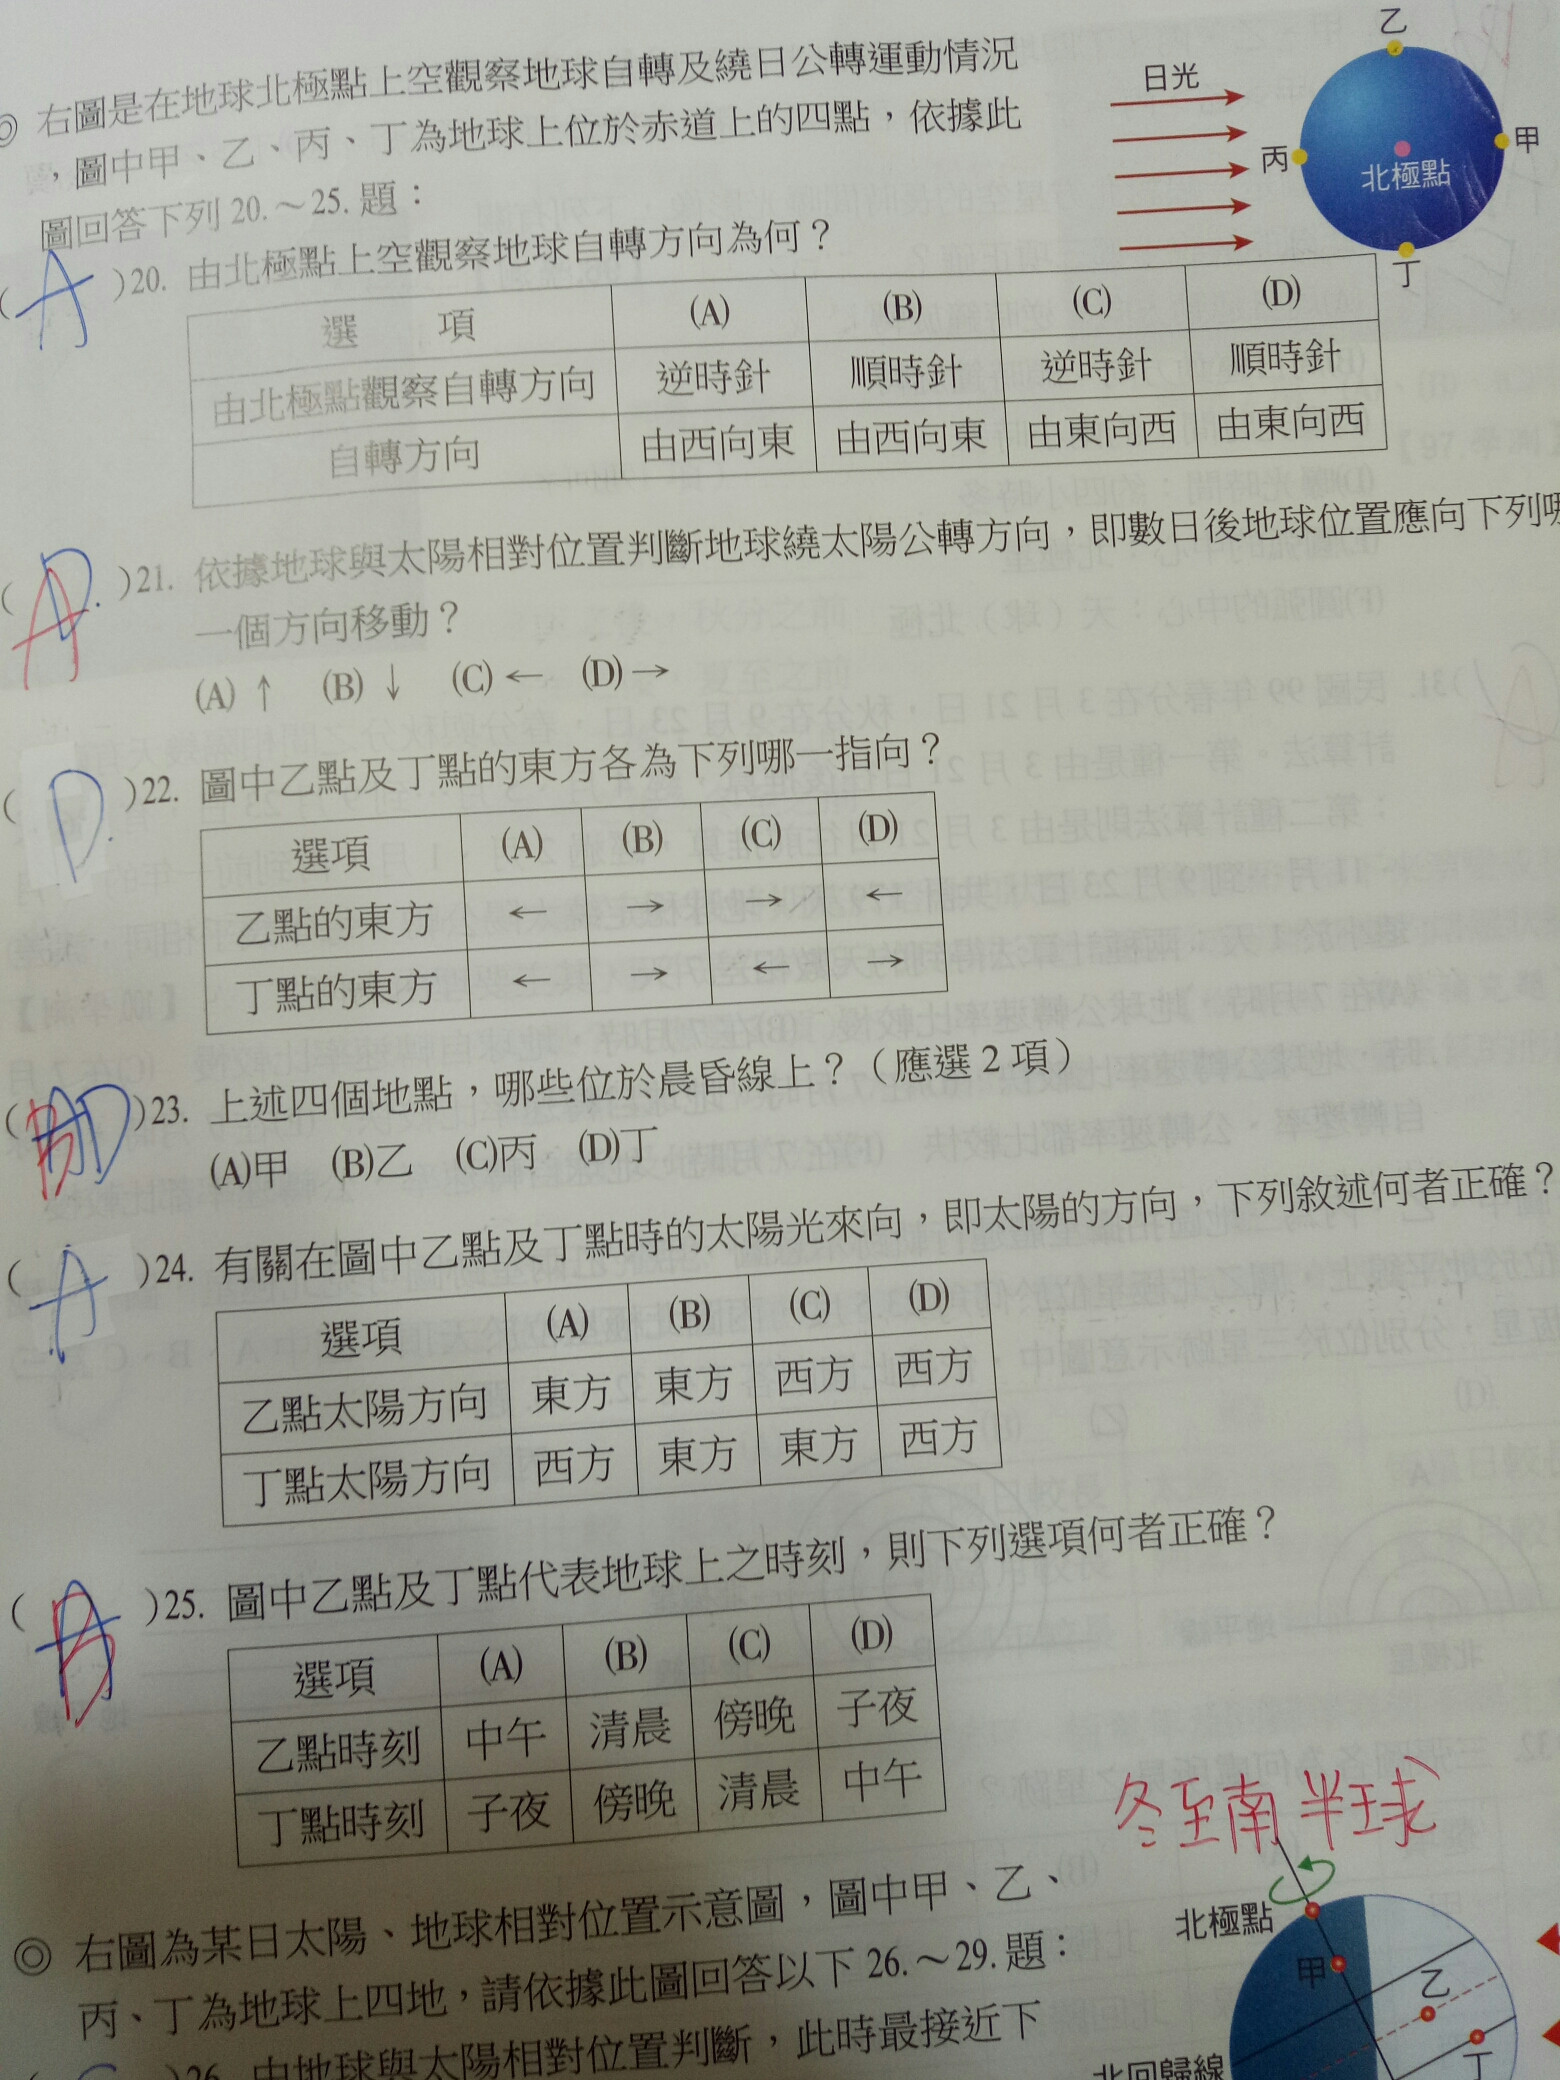 ◎ 右圖是在地球北極點上空觀察地球自轉及繞日公轉運動情況
，圖中甲、乙、丙、丁為地球上位於赤道上的四點，依據此
圖回答下列 20.～25. 題：
日光
乙
甲
丙
北極點
丁
( A )20. 由北極點上空觀察地球自轉方向為何？
選項 (A) (B) (C) (D)
由北極點觀察自轉方向 逆時針 順時針 逆時針 順時針
自轉方向 由西向東 由西向東 由東向西 由東向西
( D. A )21. 依據地球與太陽相對位置判斷地球繞太陽公轉方向，即數日後地球位置應向下列哪
一個方向移動？
(A) ↑ (B) ↓ (C) ← (D) →
( D. )22. 圖中乙點及丁點的東方各為下列哪一指向？
選項 (A) (B) (C) (D)
乙點的東方 ← → → ←
丁點的東方 ← → ← →
( BD )23. 上述四個地點，哪些位於晨昏線上？（應選 2 項）
(A)甲 (B)乙 (C)丙 (D)丁
( A )24. 有關在圖中乙點及丁點時的太陽光來向，即太陽的方向，下列敘述何者正確？
選項 (A) (B) (C) (D)
乙點太陽方向 東方 東方 西方 西方
丁點太陽方向 西方 東方 東方 西方
( A B )25. 圖中乙點及丁點代表地球上之時刻，則下列選項何者正確？
選項 (A) (B) (C) (D)
乙點時刻 中午 清晨 傍晚 子夜
丁點時刻 子夜 傍晚 清晨 中午
冬至南半球
◎ 右圖為某日太陽、地球相對位置示意圖，圖中甲、乙、
丙、丁為地球上四地，請依據此圖回答以下 26.～29. 題：
)26. 由地球與太陽相對位置判斷，此時最接近下
北極點
甲
乙
丁
北回歸線